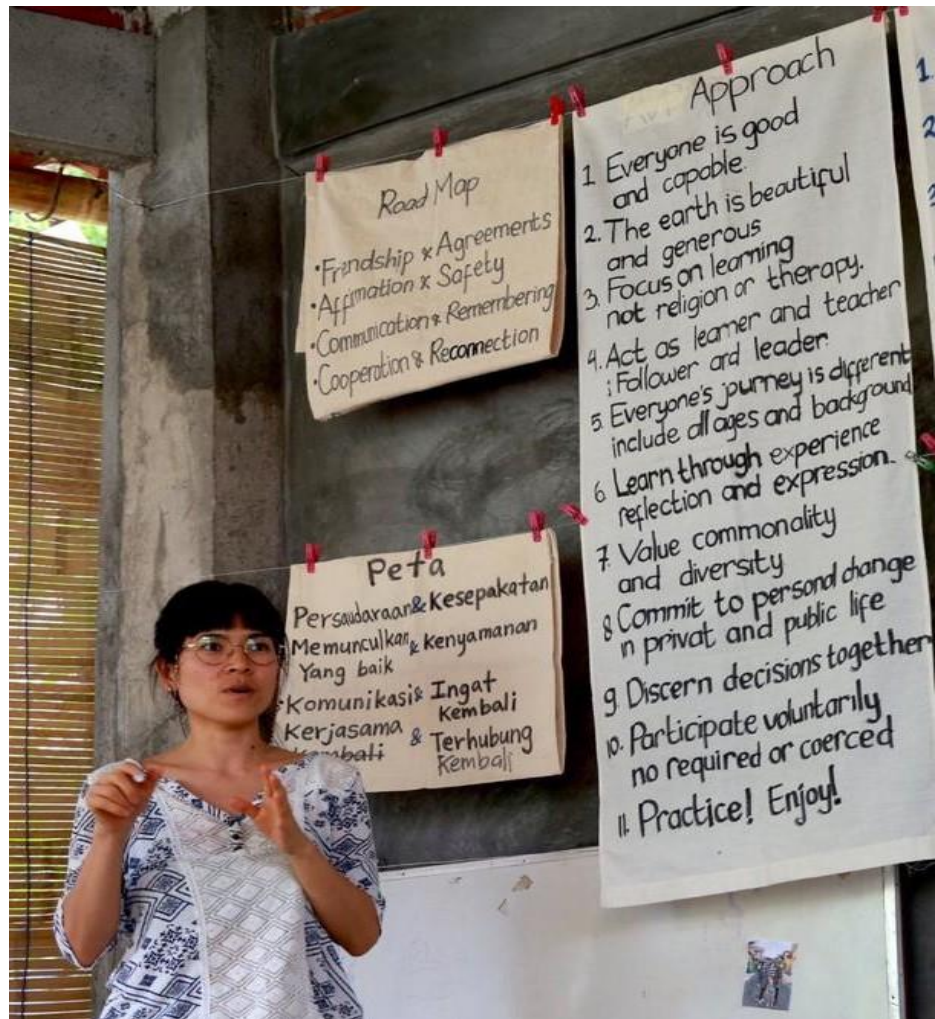 Road Map
•Friendship & Agreements
•Affimation & Safety
•Communication & Remembering
•Cooperation & Reconnection
Peta
Persaudaraan & Kesepakatan
Memunculkan & Kenyamanan
Yang baik
•Komunikasi & Ingat
Kembali
Kerjasama & Terhubung
Kembali Kembali
Approach
1. Everyone is good
and capable.
2. The earth is beautiful
and generous
3. Focus on learning
not religion or therapy.
4. Act as learner and teacher
; Follower and leader.
5. Everyone's journey is different
include all ages and background
6. Learn through experience
reflection and expression.
7. Value commonality
and diversity
8 Commit to personal change
in privat and public life
9. Discern decisions together
10. Participate voluntarily
no required or coerced
11. Practice! Enjoy!
1.
2
3